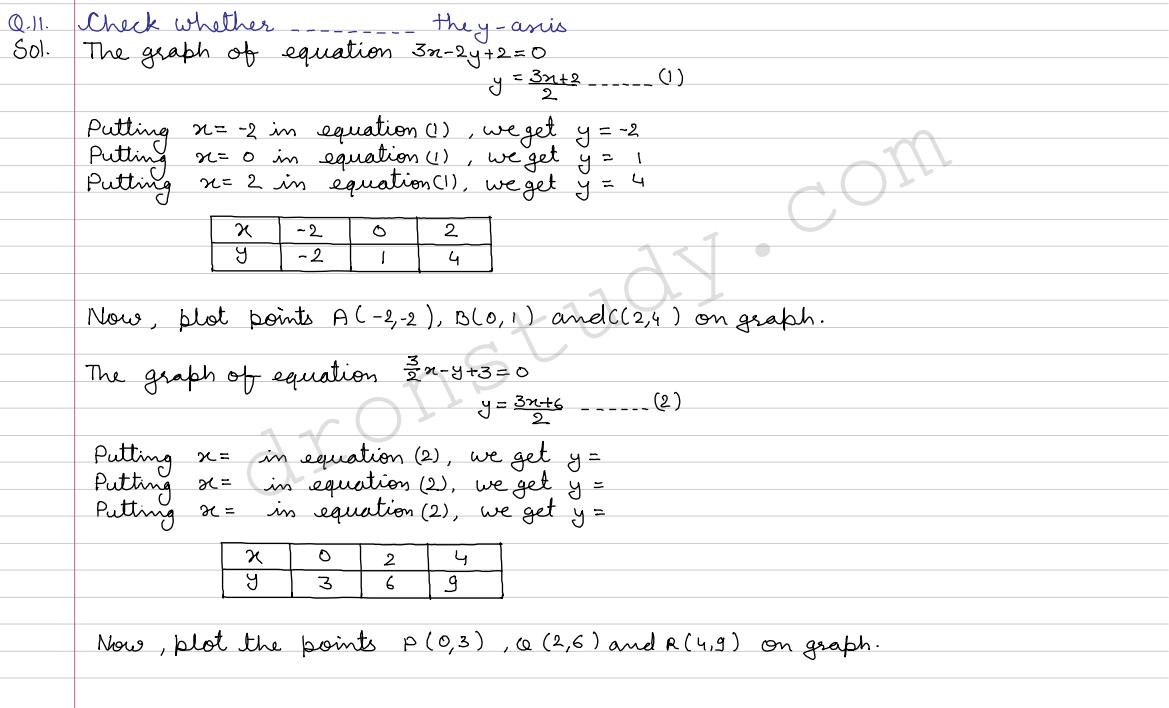 Q.11. Check whether --------- the y-axis
Sol. The graph of equation 3x-2y+2=0
y = 3x+2/2 ------ (1)
Putting x= -2 in equation (1), we get y = -2
Putting x= 0 in equation (1), we get y = 1
Putting x= 2 in equation (1), we get y = 4
x -2 0 2
y -2 1 4
Now, plot points A(-2,-2), B(0,1) and C(2,4) on graph.
The graph of equation 3/2x-y+3=0
y = 3x+6/2 ------ (2)
Putting x= in equation (2), we get y =
Putting x= in equation (2), we get y =
Putting x= in equation (2), we get y =
x 0 2 4
y 3 6 9
Now, plot the points P(0,3), Q(2,6) and R(4,9) on graph.
dronstudy.com